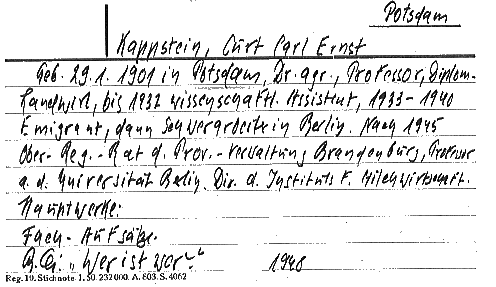 Potsdam
Kappstein, Curt Carl Ernst
Geb. 29.1.1901 in Potsdam, Dr. agr., Professor, Diplom-
Landwirt, bis 1932 wissenschaftl. Assistent, 1933-1940
Emigrant, dann Schwerarbeiter in Berlin. Nach 1945
Ober-Reg.-Rat d. Prov.-Verwaltung Brandenburg, Professor
a. d. Universität Berlin. Dir. d. Instituts f. Milchwirtschaft.
Hauptwerke:
Fach-Aufsätze.
"Wer ist wer?" 1948
Reg. 19. Stichnote 1. 50. 232000. A. 803. S. 4062